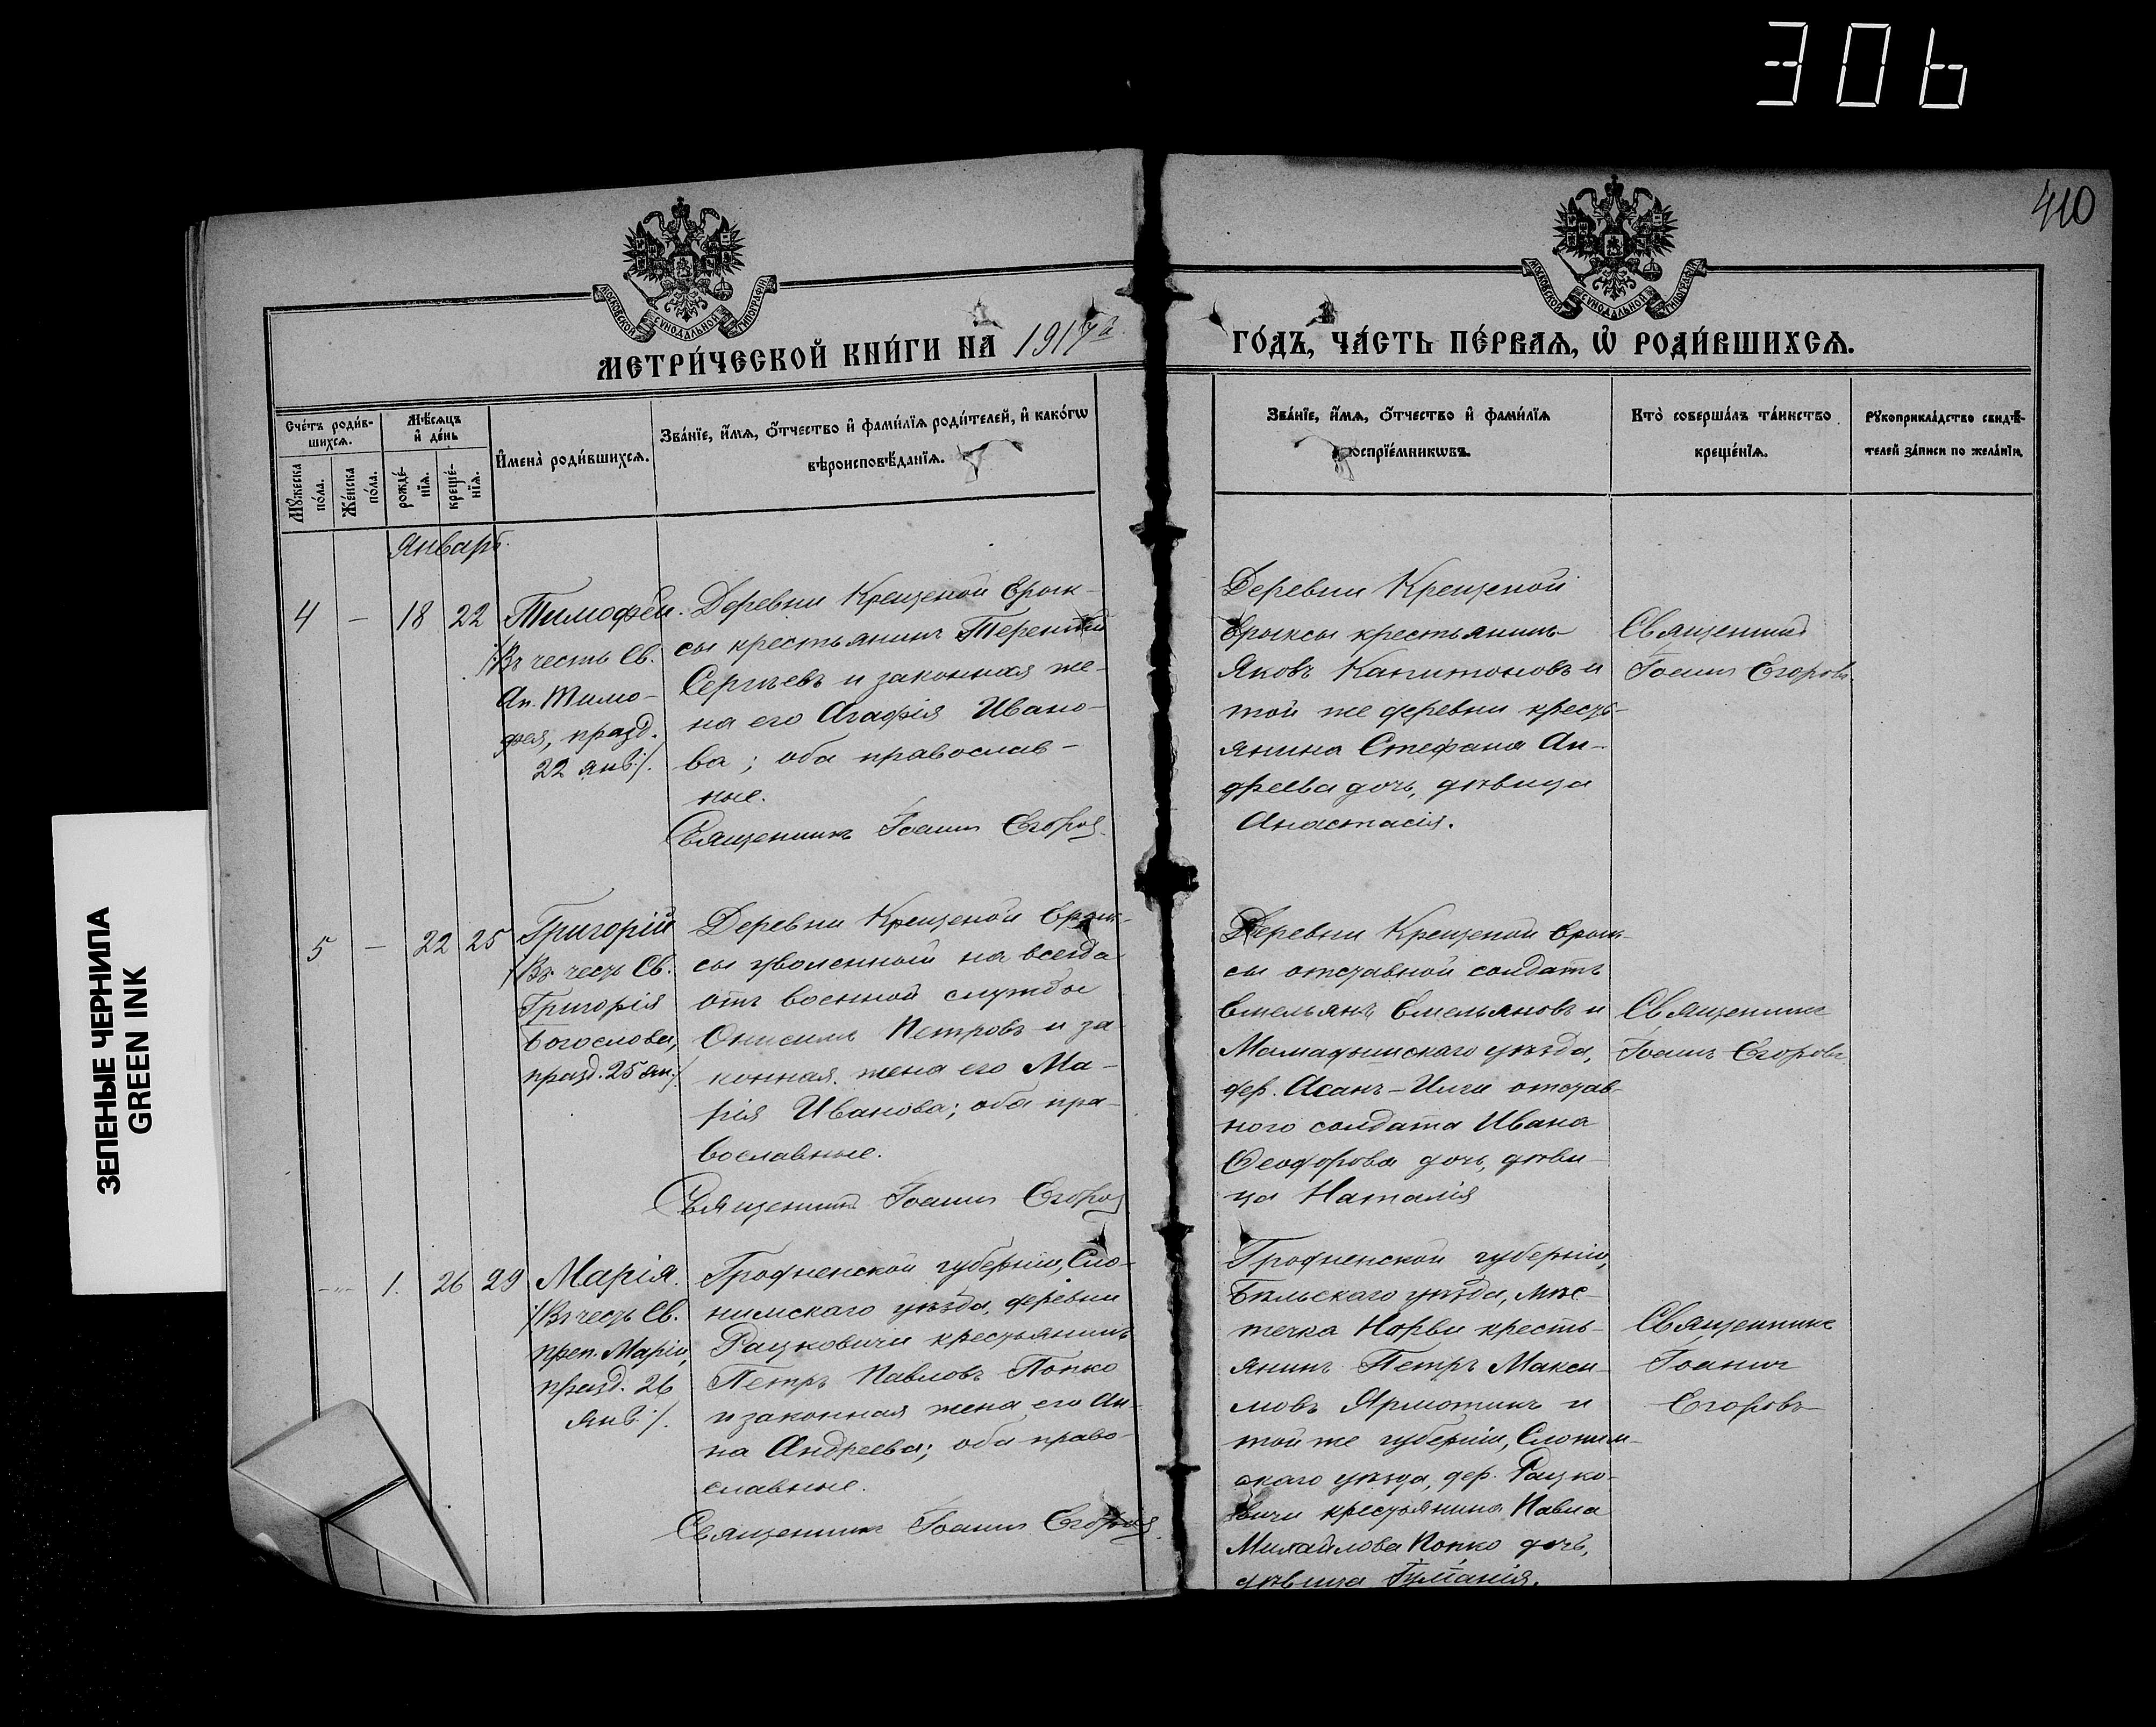 306
410
МОСКОВСКОЙ СѴНОДАЛЬНОЙ ТИПОГРАФІИ
МОСКОВСКОЙ СѴНОДАЛЬНОЙ ТИПОГРАФІИ
МЕТРИ́ЧЕСКОЙ КНИ́ГИ НА 1917й
ГО́ДЪ, ЧА́СТЬ ПЕ́РВАѦ, Ѽ РОДИ́ВШИХСѦ.
Сче́тъ роди́в-
шихсѧ.
Мꙋ́жеска по́ла.
Же́нска по́ла.
Мѣ́сѧцъ и҆ де́нь
рожде́-нїѧ.
креще́-нїѧ.
И҆мена̀ роди́вшихсѧ.
Зва́нїе, и҆́мѧ, ѻ҆́тчество и҆ фами́лїѧ роди́телей, и҆ како́гѡ
вѣроисповѣ́данїѧ.
Зва́нїе, и҆́мѧ, ѻ҆́тчество и҆ фами́лїѧ
воспрїе́мникѡвъ.
Кто̀ соверша́лъ та́инство
креще́нїѧ.
Рꙋкоприкла́дство свидѣ́-
телей за́писи по жела́нїю.
Январь.
4 — 18 22
Тимофей.
/:Въ честь Св.
Ап. Тимо-
фея, празд.
22 янв:/.
Деревни Крещеной Ерык-
сы крестьянинъ Терентій
Сергѣевъ и законная же-
на его Агафія Ивано-
ва; оба православ-
ные.
Священникъ Іоаннъ Егоровъ
Деревни Крещеной
Ерыксы крестьянинъ
Яковъ Капитоновъ и
той же деревни кресть-
янина Стефана Ан-
дреева дочь, дѣвица
Анастасія.
Священникъ
Іоаннъ Егоровъ
5 — 22 25
Григорій
/Въ честь Св.
Григорія
Богослова,
празд. 25 янв./
Деревни Крещеной Ерык-
сы уволенный на всегда
отъ военной службы
Онисимъ Петровъ и за-
конная жена его Ма-
рія Иванова; оба пра-
вославные.
Священникъ Іоаннъ Егоровъ
Деревни Крещеной Ерык-
сы отставной солдатъ
Емельянъ Емельяновъ и
Мамадышскаго уѣзда,
дер. Асанъ-Илги отстав-
ного солдата Ивана
Ѳеодорова дочь, дѣви-
ца Наталія
Священникъ
Іоаннъ Егоровъ
— 1. 26 29
Марія.
/:Въ честь Св.
преп. Маріи,
празд. 26
янв:/.
Гродненской губерніи, Сло-
нимскаго уѣзда, деревни
Рацковичи крестьянинъ
Петръ Павловъ Попко
и законная жена его Ан-
на Андреева; оба право-
славные.
Священникъ Іоаннъ Егоровъ
Гродненской губерніи,
Бѣльскаго уѣзда, мѣс-
течка кресть-
янинъ Петръ Макси-
мовъ и
той же губерніи, Слоним-
скаго уѣзда, дер. Рацко-
вичи крестьянина Павла
Михайлова Попко дочь,
дѣвица
Священникъ
Іоаннъ
Егоровъ
ЗЕЛЕНЫЕ ЧЕРНИЛА
GREEN INK